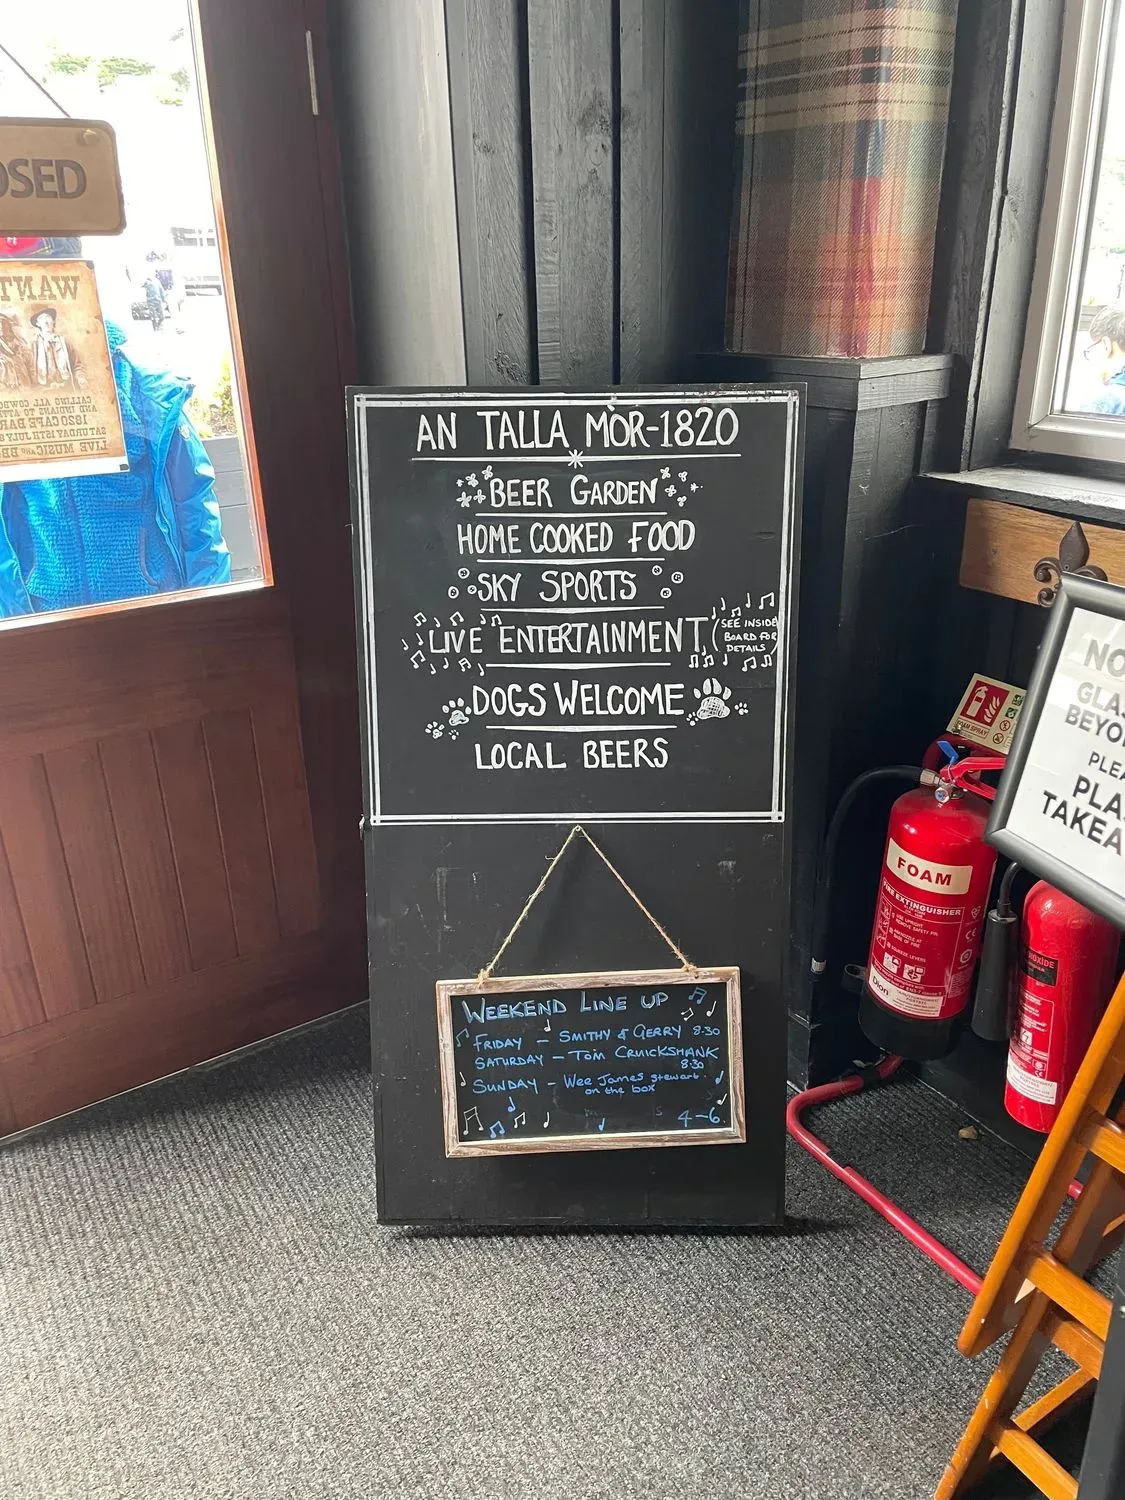 OSED
WANT
CALLING ALL COWBO
AND INDIANS TO ATT
1820 CAFE BAR
SATURDAY 15TH JULY
LIVE MUSIC AND BB
AN TALLA MÒR-1820
BEER GARDEN
HOME COOKED FOOD
SKY SPORTS
LIVE ENTERTAINMENT (SEE INSIDE
BOARD FOR
DETAILS)
DOGS WELCOME
LOCAL BEERS
WEEKEND LINE UP
FRIDAY - SMITHY & GERRY 8.30
SATURDAY - TOM CRUICKSHANK
8.30
SUNDAY - WEE JAMES STEWART
on the box
4-6
NO
GLAS
BEYO
PLEA
PLA
TAKEA
FOAM SPRAY
FOAM
FIRE EXTINGUISHER
Dion
OXIDE